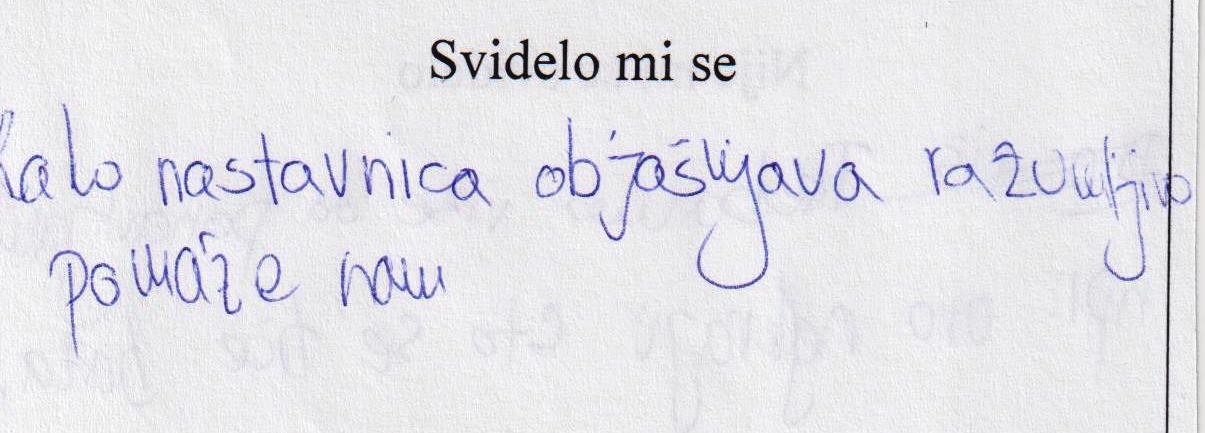 Svidelo mi se
Kako nastavnica objašnjava razumljivo
pomaže nam